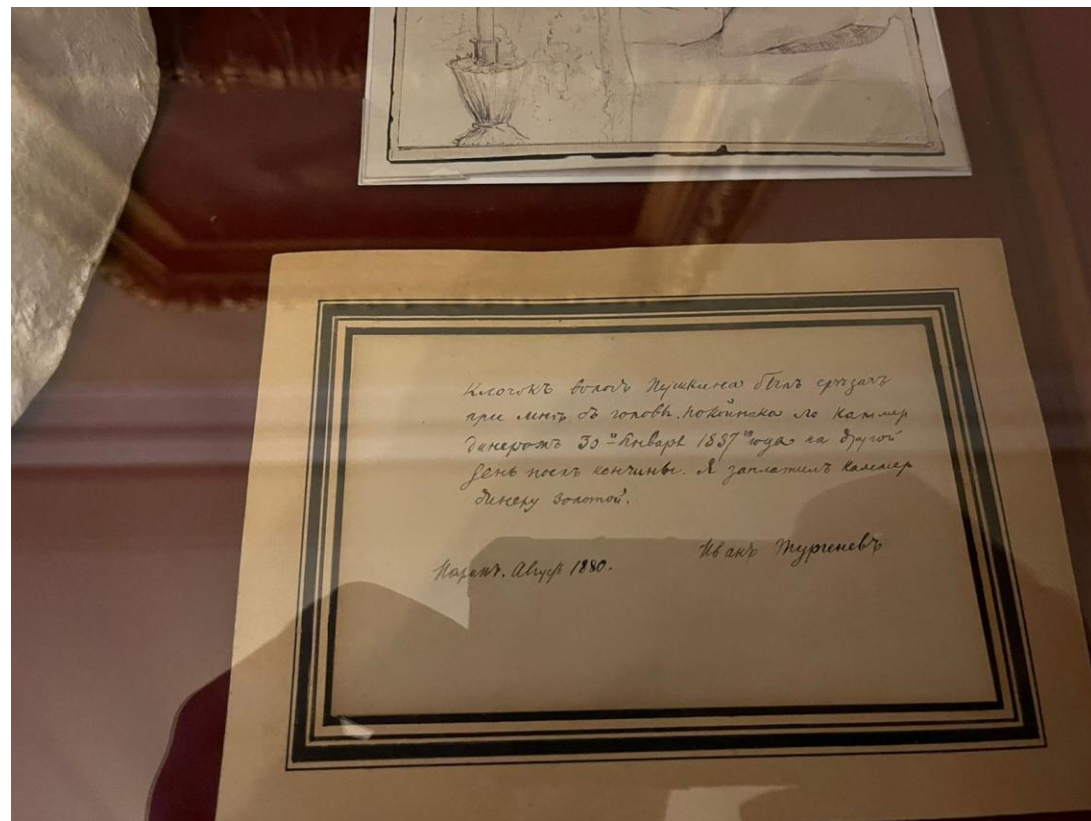 Клочокъ волосъ Пушкина былъ срѣзанъ
при мнѣ съ головы покойника его каммер
динеромъ 30го Января 1837го года на другой
день послѣ кончины. Я заплатилъ каммер
динеру золотой.
Иванъ Тургеневъ
Парижъ. Августъ 1880.